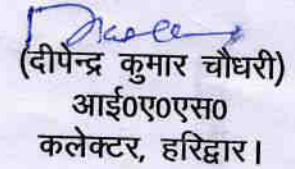 (दीपेन्द्र कुमार चौधरी)
आई0ए0एस0
कलेक्टर, हरिद्वार।